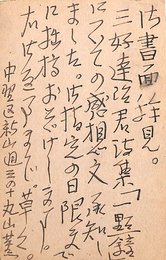 御書面拝見。
三好達治君詩集「一點鐘」
についての感想文承知し
ました。御指定の日限まで
に拙稿おとどけします。
右御返事まで 草々。
中野区新山通三の十 丸山薫